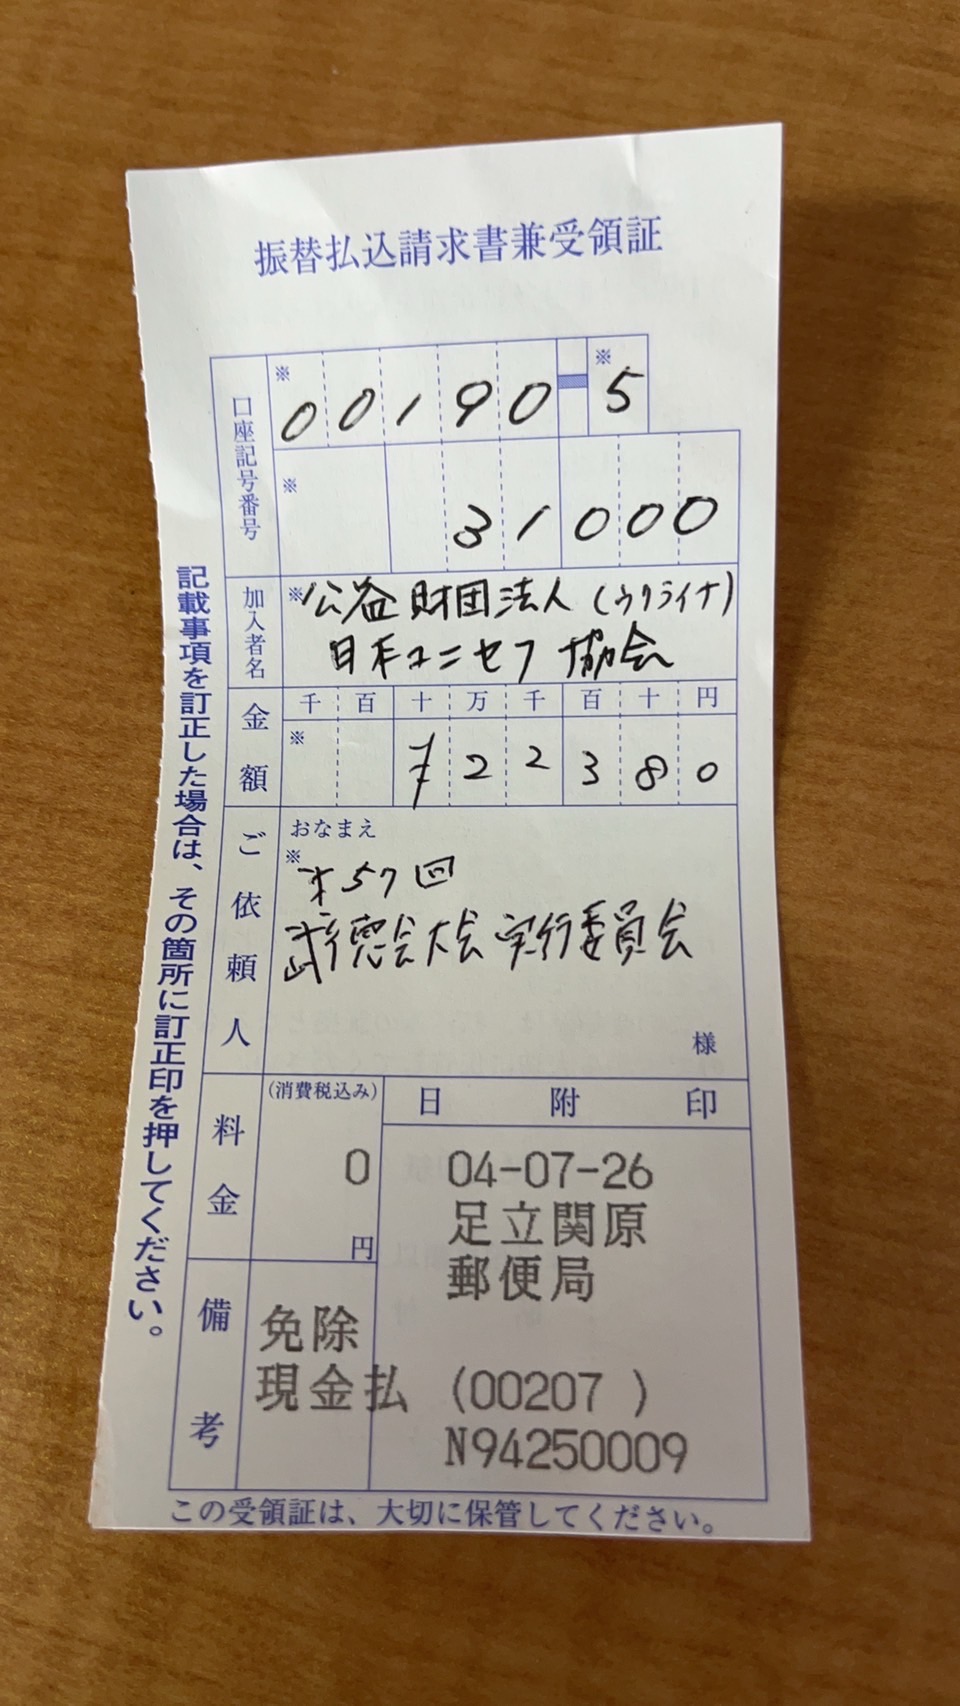 振替払込請求書兼受領証
口座記号番号
※ 00190-※5
※ 31000
加入者名
※公益財団法人(ウクライナ)
日本ユニセフ協会
金額
千 百 十 万 千 百 十 円
※ ¥22380
ご依頼人
おなまえ
※
才57回
武徳会大会実行委員会
様
料金
(消費税込み)
0
円
日附印
04-07-26
足立関原
郵便局
(00207 )
N94250009
備考
免除
現金払
記載事項を訂正した場合は、その箇所に訂正印を押してください。
この受領証は、大切に保管してください。